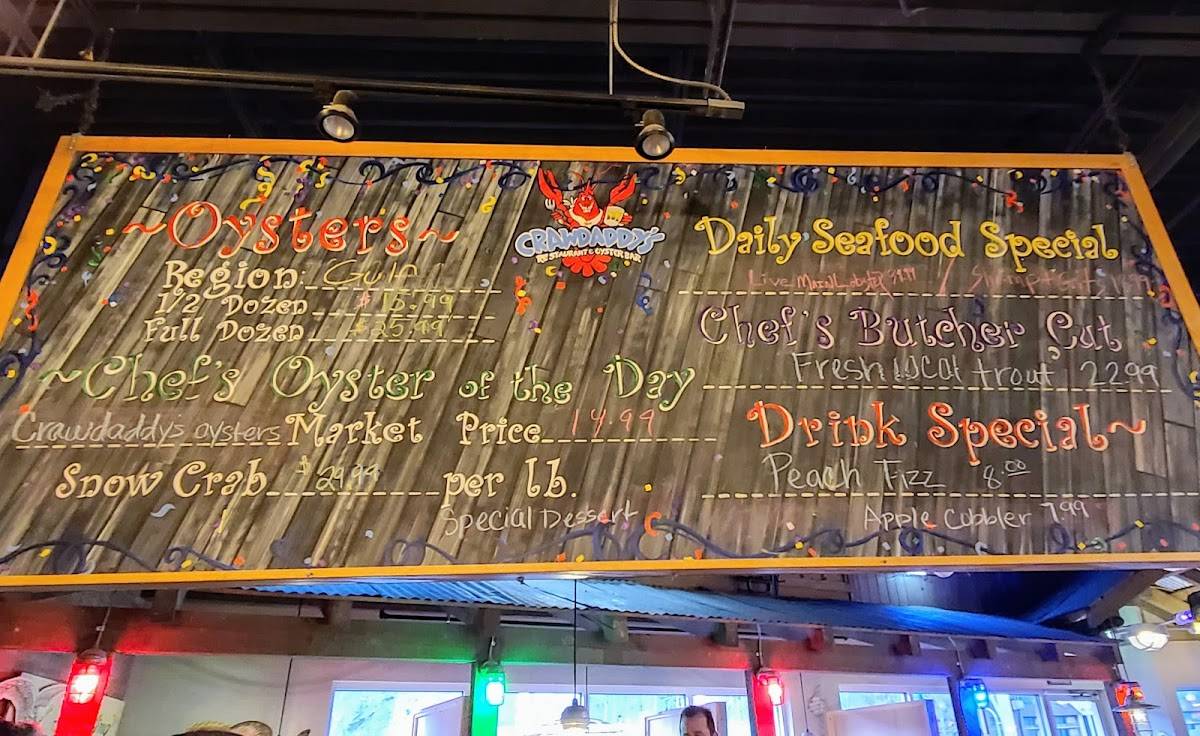 ~Oysters~
Region: Gulf
1/2 Dozen $ 15.99
Full Dozen $25.99
~Chef's Oyster of the Day
Crawdaddys oysters Market Price 14.99
Snow Crab $ 29.99 per lb.
Special Dessert
CRAWDADDY'S
RESTAURANT & OYSTER BAR
Daily Seafood Special
Live Main Lobster /
Chef's Butcher Cut
Fresh local trout 22.99
Drink Special~
Peach Fizz 8.00
Apple Cobbler 7.99